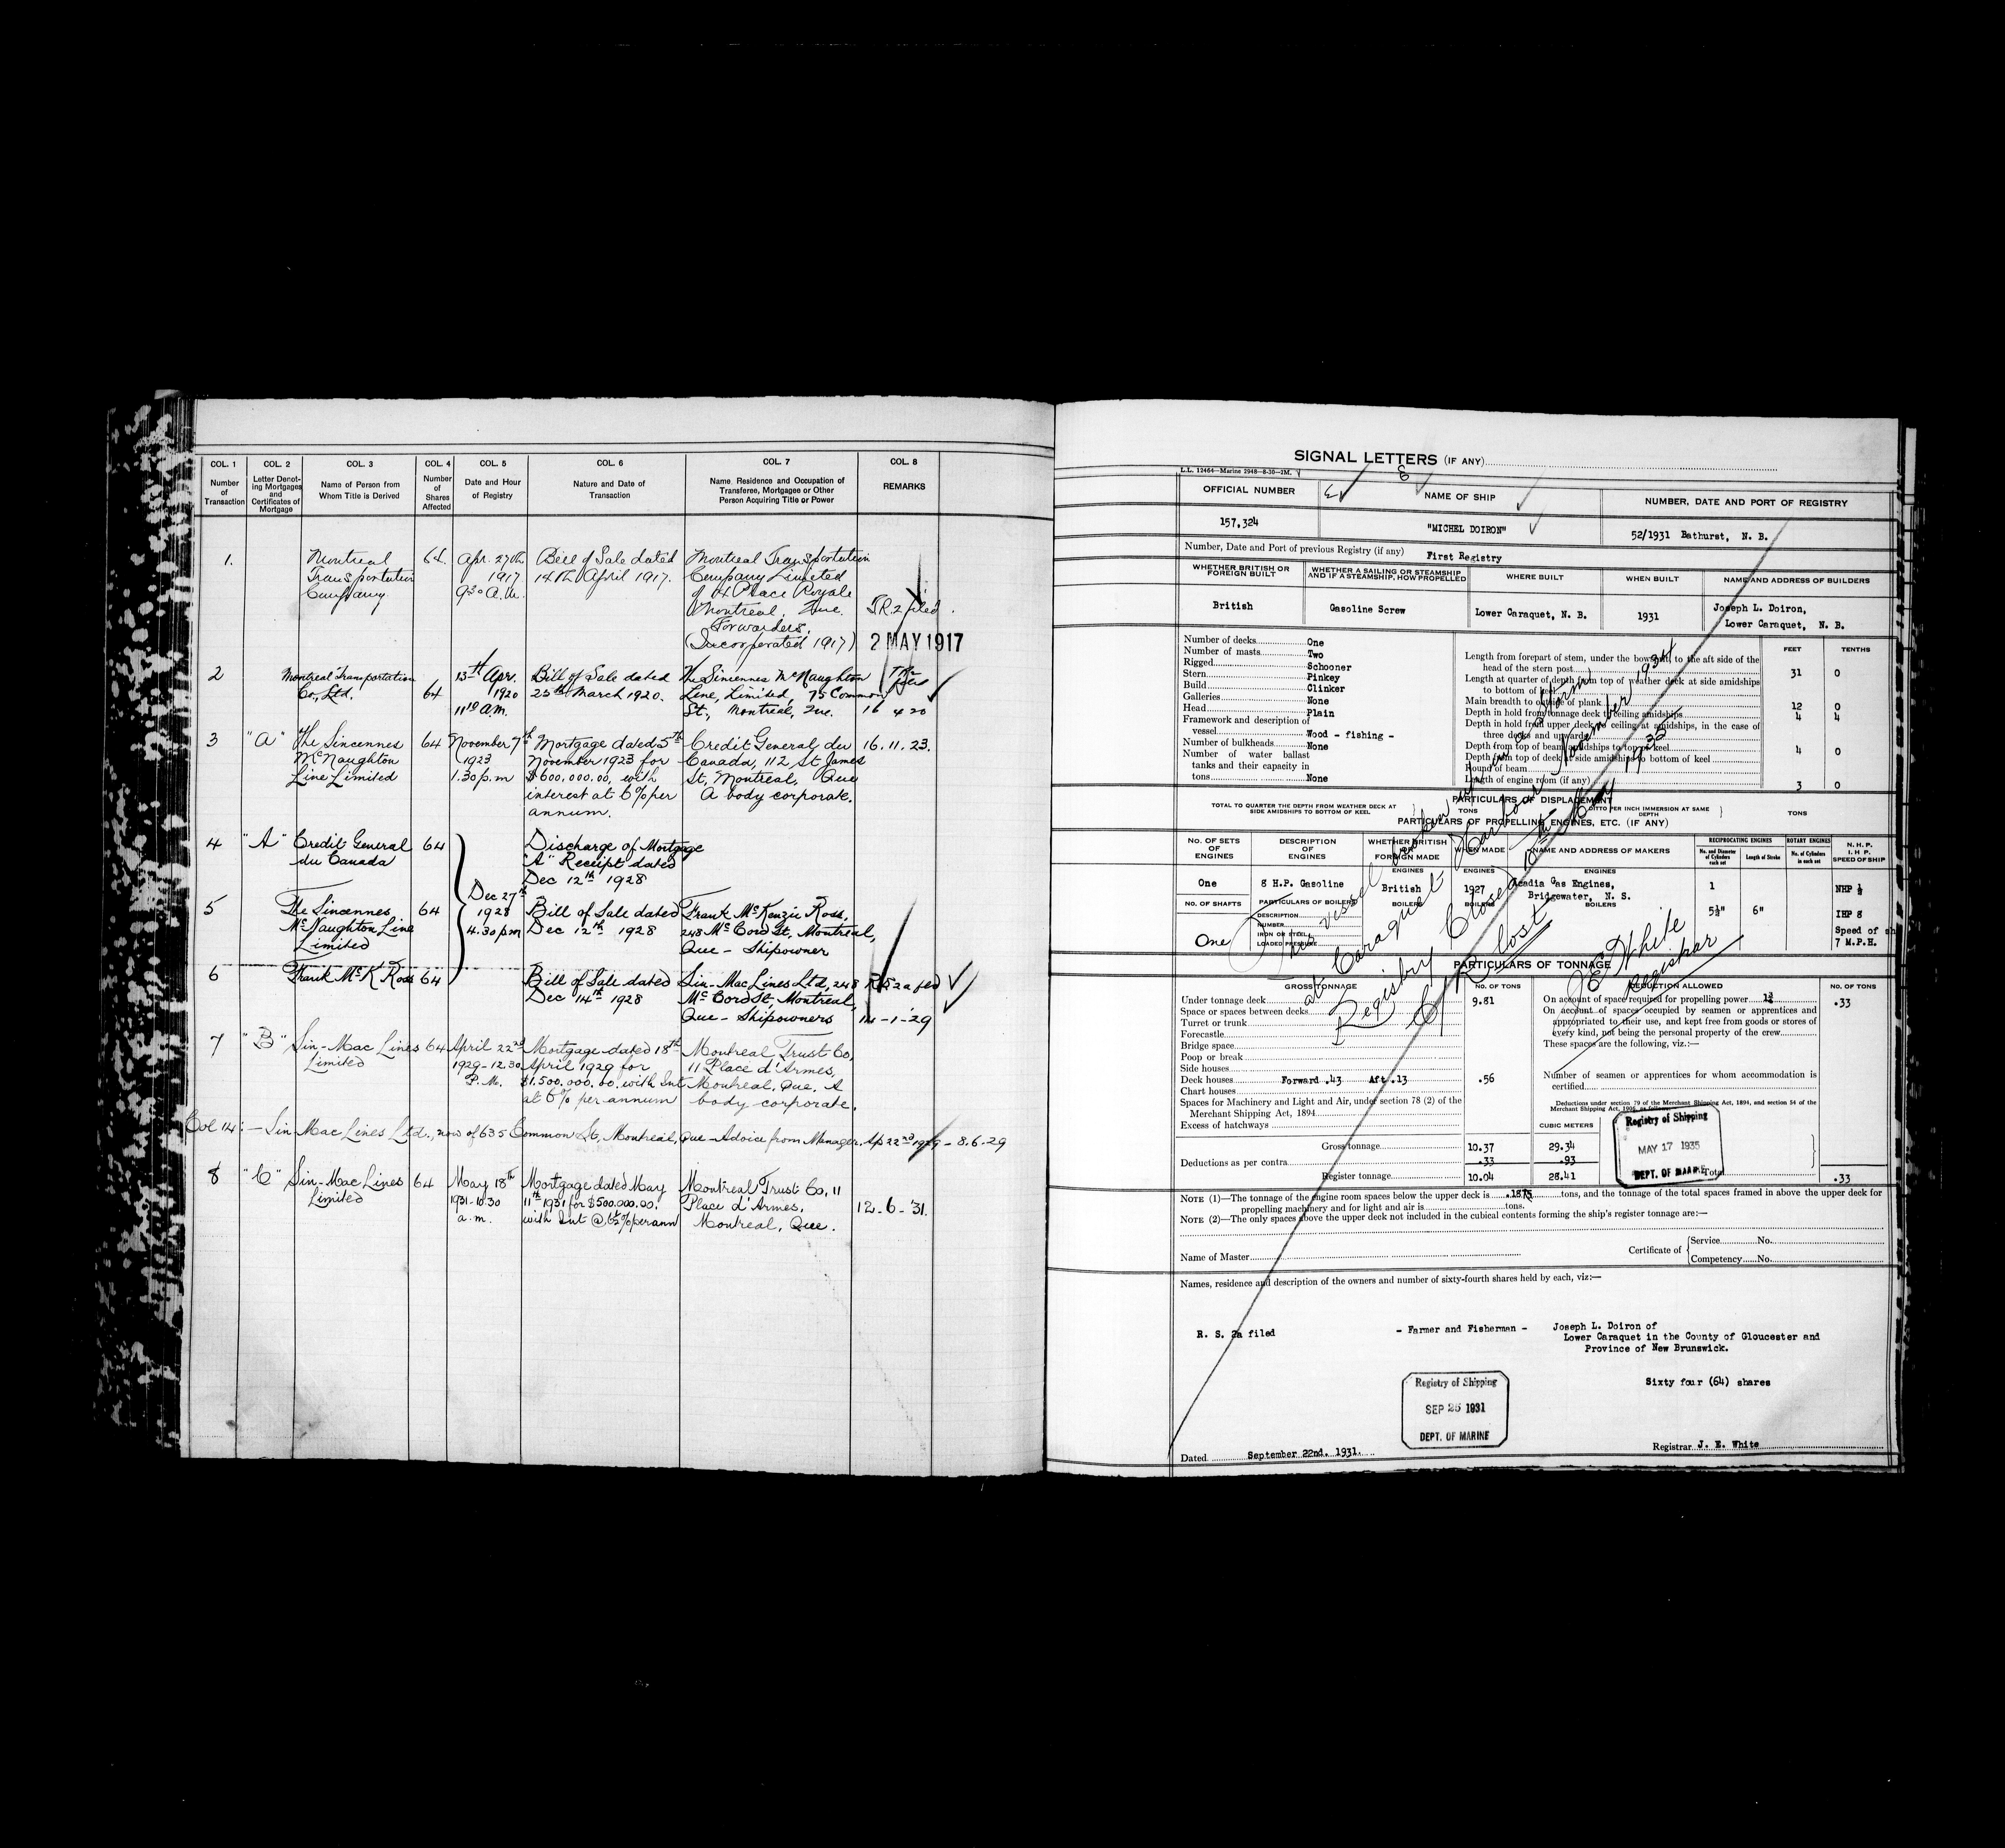 COL. 1 COL. 2 COL. 3 COL. 4 COL. 5 COL. 6 COL. 7 COL. 8
Number of Transaction
Letter Denoting Mortgages and Certificates of Mortgage
Name of Person from Whom Title is Derived
Number of Shares Affected
Date and Hour of Registry
Nature and Date of Transaction
Name Residence and Occupation of Transferee, Mortgagee or Other Person Acquiring Title or Power
REMARKS
1. Montreal 64 Apr. 27th Bill of Sale dated Montreal Transportation
Transportation 1917 14th April 1917. Company Limited
Company 9.30 A.M. of 4 Place Royale
Montreal, Que. S.R.2 filed.
Forwarders.
(Incorporated 1917) 2 MAY 1917
2 Montreal Transportation 13th Apr. Bill of Sale dated The Sincennes McNaughton
Co., Ltd, 64 1920 25th March 1920. Line, Limited, 75 Common
11 A.M. St., Montreal, Que. 16 4 20
3 "A" The Sincennes 64 November 7th Mortgage dated 5th Credit General du 16.11.23.
McNaughton 1923 November 1923 for Canada, 112 St James
Line Limited 1.30 p.m $600,000.00, with St, Montreal, Que
interest at 6% per A body corporate.
annum.
4 "A" Credit General 64 Discharge of Mortgage
du Canada "A" Receipt dated
Dec 12th 1928
Dec 27th
5 The Sincennes 64 1928 Bill of Sale dated Frank McKenzie Ross,
McNaughton Line 4.30 pm Dec 12th 1928 248 McCord St, Montreal,
Limited Que - Shipowner
6 Frank McK Ross 64 Bill of Sale dated Sin-Mac Lines Ltd, 248 R.S 2a fed
Dec 14th 1928 McCord St. Montreal,
Que - Shipowners 14-1-29
7 "B" Sin-Mac Lines 64 April 22nd Mortgage dated 18th Montreal Trust Co,
Limited 1929-12.30 April 1929 for 11 Place d'Armes,
P.M. $1,500,000.00. with Int Montreal, Que. A
at 6% per annum body corporate.
Col 14:- Sin Mac Lines Ltd., now of 635 Common St, Montreal, Que - Advice from Manager. Ap 22nd 1929 - 8.6.29
8 "C" Sin-Mac Lines 64 May 18th Mortgage dated May Montreal Trust Co, 11
Limited 1931-10.30 11th 1931 for $500,000.00. Place d'Armes, 12-6-'31.
a.m. with Int @ 6½% per ann Montreal, Que.
SIGNAL LETTERS (IF ANY)
L.L. 12464—Marine 2948—8-30—2M.
OFFICIAL NUMBER NAME OF SHIP NUMBER, DATE AND PORT OF REGISTRY
157,324 "MICHEL DOIRON" 52/1931 Bathurst, N. B.
Number, Date and Port of previous Registry (if any) First Registry
WHETHER BRITISH OR FOREIGN BUILT
WHETHER A SAILING OR STEAMSHIP AND IF A STEAMSHIP, HOW PROPELLED
WHERE BUILT WHEN BUILT NAME AND ADDRESS OF BUILDERS
British Gasoline Screw Lower Caraquet, N. B. 1931 Joseph L. Doiron,
Lower Caraquet, N. B.
Number of decks One
Number of masts Two
Rigged Schooner
Stern Pinkey
Build Clinker
Galleries None
Head Plain
Framework and description of
vessel Wood - fishing -
Number of bulkheads None
Number of water ballast
tanks and their capacity in
tons None
FEET TENTHS
Length from forepart of stem, under the bowsprit, to the aft side of the
head of the stern post 31 0
Length at quarter of depth from top of weather deck at side amidships
to bottom of keel
Main breadth to outside of plank 12 0
Depth in hold from tonnage deck to ceiling amidships 4 4
Depth in hold from upper deck to ceiling at amidships, in the case of
three decks and upwards
Depth from top of beam amidships to top of keel 4 0
Depth from top of deck at side amidships to bottom of keel
Round of beam
Length of engine room (if any) 3 0
PARTICULARS OF DISPLACEMENT
TOTAL TO QUARTER THE DEPTH FROM WEATHER DECK AT SIDE AMIDSHIPS TO BOTTOM OF KEEL TONS
DITTO PER INCH IMMERSION AT SAME DEPTH TONS
PARTICULARS OF PROPELLING ENGINES, ETC. (IF ANY)
No. OF SETS OF ENGINES
DESCRIPTION OF ENGINES
WHETHER BRITISH OR FOREIGN MADE
WHEN MADE
NAME AND ADDRESS OF MAKERS
RECIPROCATING ENGINES
No. and Diameter of Cylinders each set
Length of Stroke
ROTARY ENGINES
No. of Cylinders in each set
N. H. P.
I. H. P.
SPEED OF SHIP
ENGINES ENGINES ENGINES
One 8 H.P. Gasoline British 1927 Acadia Gas Engines, 1 NHP ½
Bridgewater, N. S.
No. OF SHAFTS PARTICULARS OF BOILERS BOILERS BOILERS BOILERS
5½" 6" IHP 8
DESCRIPTION
NUMBER
IRON OR STEEL
LOADED PRESSURE
One
Speed of sh
7 M.P.H.
This vessel broken up in a storm
at Caraquet Harbour November 1934
Registry Closed 10th May 1935
C/R Lost
J E White
Registrar
PARTICULARS OF TONNAGE
GROSS TONNAGE No. OF TONS DEDUCTION ALLOWED No. OF TONS
Under tonnage deck 9.81
Space or spaces between decks
Turret or trunk
Forecastle
Bridge space
Poop or break
Side houses
Deck houses Forward .43 Aft .13 .56
Chart houses
Spaces for Machinery and Light and Air, under section 78 (2) of the
Merchant Shipping Act, 1894
Excess of hatchways
On account of space required for propelling power .33
On account of spaces occupied by seamen or apprentices and
appropriated to their use, and kept free from goods or stores of
every kind, not being the personal property of the crew
These spaces are the following, viz.:—
Number of seamen or apprentices for whom accommodation is
certified
Deductions under section 79 of the Merchant Shipping Act, 1894, and section 54 of the
Merchant Shipping Act, 1906, as follows:
CUBIC METERS
Gross tonnage 10.37 29.34
Deductions as per contra .33 .93
Register tonnage 10.04 28.41
Total .33
Registry of Shipping
MAY 17 1935
DEPT. OF MARINE
NOTE (1)—The tonnage of the engine room spaces below the upper deck is .1875 tons, and the tonnage of the total spaces framed in above the upper deck for
propelling machinery and for light and air is tons.
NOTE (2)—The only spaces above the upper deck not included in the cubical contents forming the ship's register tonnage are:—
Name of Master
Certificate of
Service No.
Competency No.
Names, residence and description of the owners and number of sixty-fourth shares held by each, viz:—
R. S. 2a filed - Farmer and Fisherman - Joseph L. Doiron of
Lower Caraquet in the County of Gloucester and
Province of New Brunswick.
Sixty four (64) shares
Registry of Shipping
SEP 25 1931
DEPT. OF MARINE
Dated September 22nd. 1931. Registrar J. E. White